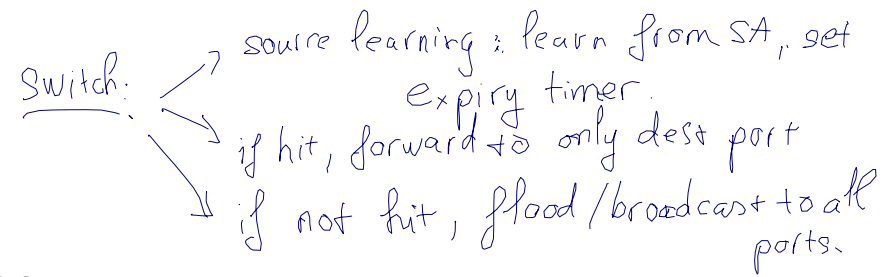 source learning : learn from SA, set
Switch:
expiry timer.
if hit, forward to only dest port
if not hit, flood/broadcast to all
ports.